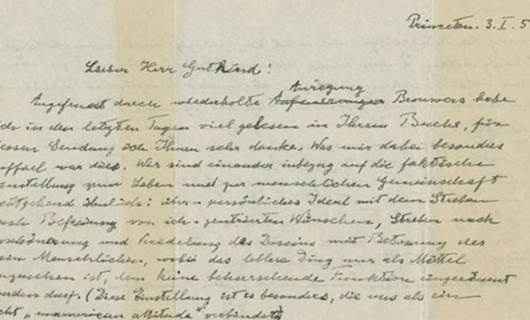 Princeton. 3. I. 5
Lieber Herr Gutkind!
Angefeuert durch wiederholte Anregung Brouwers habe
ich in den letzten Tagen viel gelesen in Ihrem Buche, für
essen Sendung ich Ihnen sehr danke. Was mir dabei besonders
uffiel war dies. Wir sind einander inbezug auf die faktische
instellung zum Leben und zur menschlichen Gemeinschaft
eitgehend ähnlich: über-persönliches Ideal mit dem Streben
nach Befreiung von ich-zentrierten Wünschen, Streben nach
erschönerung und Veredelung des Daseins mit Betonung des
ein Menschlichen, wobei das leblose Ding nur als Mittel
nzusehen ist, dem keine beherrschende Funktion eingeräumt
erden darf. (Diese Einstellung ist es besonders, die uns als ein
cht "unamerican attitude" verbindet)